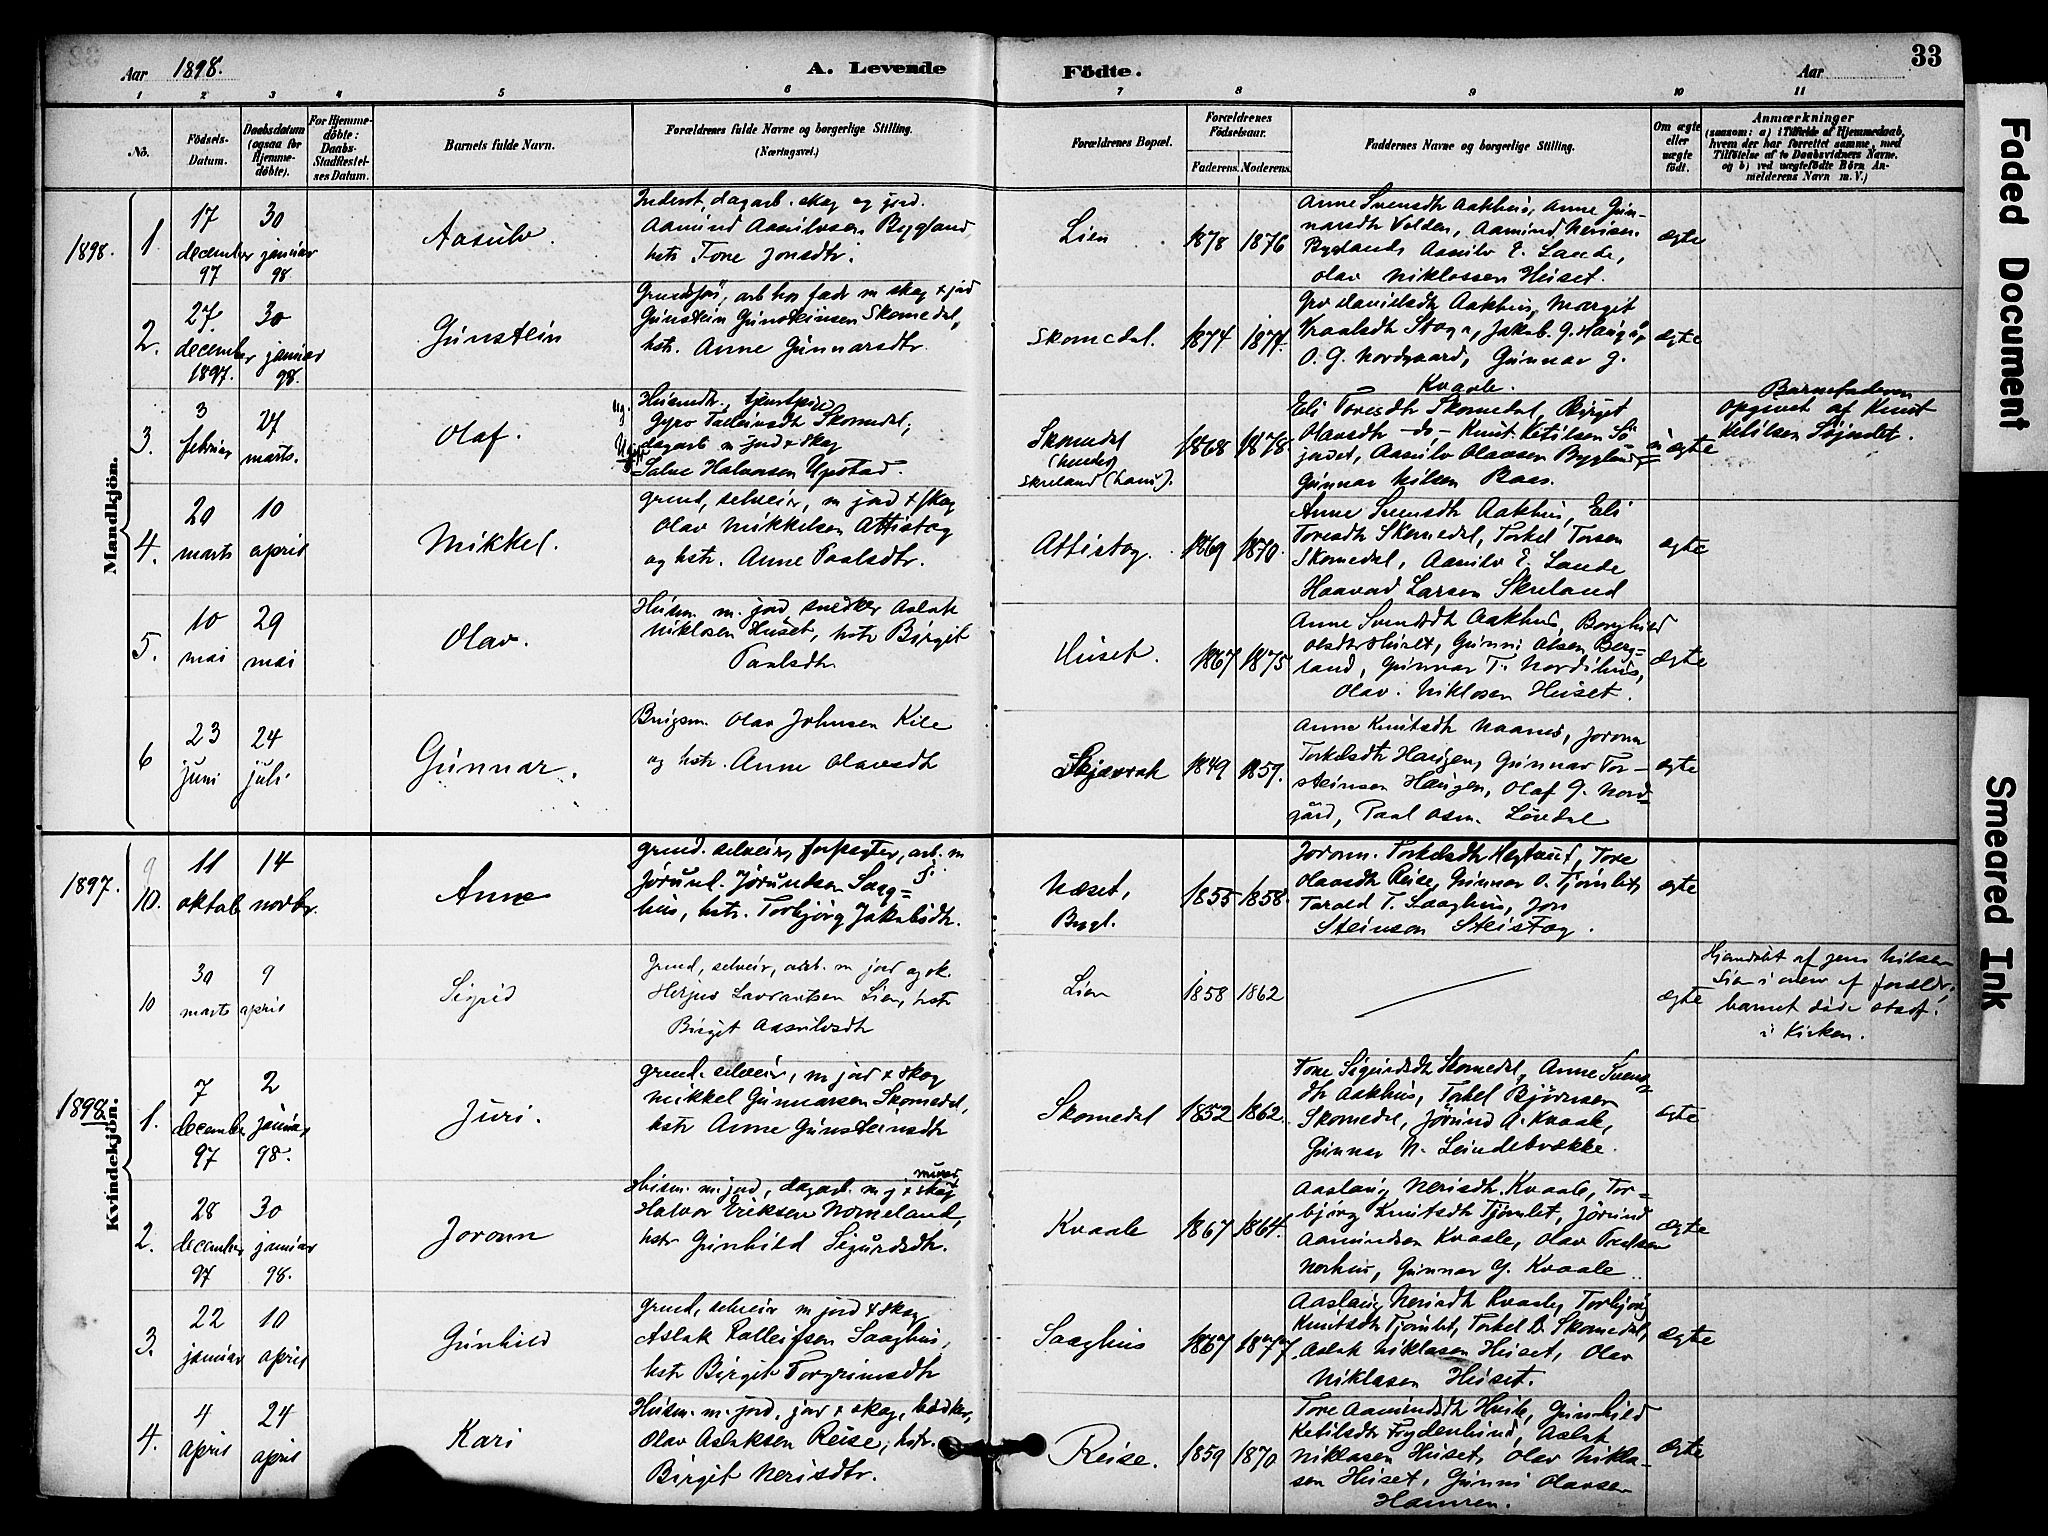 Aar 1898.
A. Levende Födte.
Aar
33
1 2 3 4 5 6 7 8 9 10 11
No.
Födsels-Datum.
Daabsdatum (ogsaa for Hjemme-döbte).
For Hjemme-döbte: Daabs-Stadfæstel-ses Datum.
Barnets fulde Navn.
Forældrenes fulde Navne og borgerlige Stilling.
(Næringsvei.)
Forældrenes Bopæl.
Forældrenes Födselsaar.
Faderens. Moderens.
Faddernes Navne og borgerlige Stilling.
Om ægte eller uægte födt.
Anmærkninger
(saasom: a) i Tilfælde af Hjemmedaab,
hvem der har forrettet samme, med
Tilföielse af to Daabsvidners Navne.
og b) ved uægtefödte Börn An-
melderens Navn m. V.)
Mandkjön.
1898.
1.
17 december 97
30 januar 98
Aasulv.
Inderst, dagarb. skog og jord.
Aamund Aasulvsen Bygland
hstr Tone Jonsdtr.
Lien
1878 1876
Anne Svensdtr Aakhus, Anne Gun-
narsdtr Velden, Aamund Nerisen
Bygland, Aasulv E. Lande,
Olav Niklossen Huset.
ægte
2.
27. december 1897.
30 januar 98.
Gunstein
arb hos fadr m skog + jord
Gunstein Gunsteinsen Skomedal,
hstr. Anne Gunnarsdtr.
Skomedal.
1874 1877.
Gro Davidsdtr Aakhus, Marget
O. G. Nordgaard, Gunnar G.
Kvaale.
ægte
3.
3 februar
27 marts.
Olaf.
ug.
Gyro Talleivsdtr Skomedal;
dagarb m jord + skog
Salve Halvorsen Upstad.
Skomedal
(hendes)
Skreland (hans).
1868 1878.
Eli Toresdtr Skomedal, Birget
Olavsdtr -do- Knut Ketilsen Sö-
jordet, Aasulv Olavsen Bygland
Gunnar Nilsen Baas.
uægte
Barnefaderen
opgivet af Knut
Ketilsen Söjordet.
4.
20 marts
10 april
Mikkel.
grund, selveier, m jord + skog
Olav Mikkelsen Attistog
og hstr. Anne Paalsdtr.
Attistog.
1869 1870.
Anne Svensdtr Aakhus, Eli
Toresdtr Skomedal, Torkel Torsen
Skomedal, Aasulv E. Lande
Haavard Larsen Skreland
ægte
5.
10 mai
29 mai
Olav.
Husm. m. jord snedker Aslak
Niklosen Huset, hstr Birgit
Paalsdtr
Huset.
1867 1875
Anne Svensdtr Aakhus, Borghild
Olsdtr Huset, Gunni Olsen Berg=
land, Gunnar T. Nordihus,
Olav. Niklosen Huset.
ægte
6
23 juni
24 juli
Gunnar.
Brugsm. Olav Johnsen Kile
og hstr. Anne Olavsdtr
Skjævrak
1849 1859.
Anne Knutsdtr Naanes, Joronn
Torkelsdtr Haugen, Gunnar Tor-
steinsen Haugen, Olaf G. Nord=
gård, Paal Asm. Lövdal
ægte
Kvindekjön.
1897.
9
10.
11 oktob
14 novbr.
Anne
grund. selveier, forpagter, arb. m j.
Jörund. Jörundsen Saag=
hus, hstr. Torbjörg Jakobsdtr.
Næset,
Bygl.
1855 1858.
Joronn. Torkelsdtr Hegtaut, Tore
Olavsdtr Reise, Gunnar O. Tjömlet,
Tarald T. Saaghus, Jon
Steinson Steistog.
ægte
10
30 marts
9 april
Sigrid
Grund, selveier, arb. m jord og sk.
Herjus Lavrantsen Lien, hstr
Birgit Aasulvsdtr
Lien
1858 1862
ægte
Hjemdöbt af Jens Nilsen
Lien i overv. af forældr,
barnet döde stadf.
i Kirken.
1898.
1.
7 december 97
2 januar 98.
Juri.
grund. selveier, m jord + skog
Mikkel Gunnarsen Skomedal,
hstr Anne Gunsteinsdtr
Skomedal
1852 1862.
Tone Sigurdsdtr Skomedal, Anne Svens=
dtr Aakhus, Torkel Björnsen
Skomedal, Jörund A. Kvaale,
Gunnar N. Leindebrække.
ægte
2.
28 december 97
30 januar 98.
Joronn
Husm. m. jord, dagarb. m j + skog murer,
Halvor Eriksen Nomeland,
hstr Gunhild Sigurdsdtr.
Kvaale
1867 1864.
Aaslaug Nerisdtr. Kvaale, Tor-
björg Knutsdtr Tjömlet, Jörund
Aamundsen Kvaale, Olav
Norhus, Gunnar G. Kvaale
ægte
3.
22 januar
10 april
Gunhild
grund, selveier m jord + skog
Aslak Talleifsen Saaghus,
hstr Birgit Torgrimsdtr
Saaghus
1867 1877
Aaslaug Nerisdtr Kvaale, Torbjörg
Knutsdtr Tjömlet, Torkel B. Skomedal,
Aslak Niklasen Huset, Olav
Niklasen Huset.
ægte
4.
4 april
24 april
Kari
Husm. m. jord. jord + skog, bödker,
Olav Aslaksen Reise, hstr.
Birgit Nerisdtr.
Reise.
1859 1870
Tore Aamundsdtr Hvile, Gunhild
Ketilsdtr Frydenlund, Aslak
Niklasen Huset, Olav Nikla-
sen Huset, Gunni Olavsen
Hamren.
ægte
Faded Document
Smeared Ink